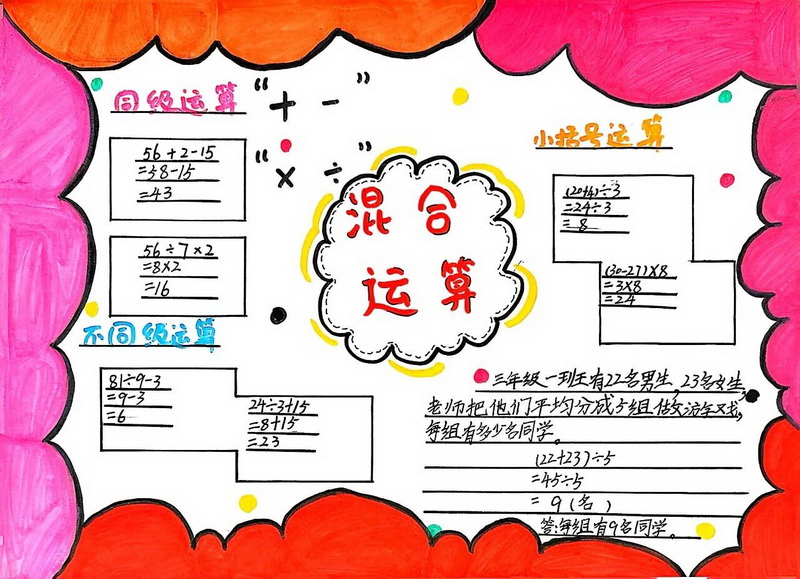 同级运算
“+ -”
“× ÷”
56+2-15
=58-15
=43
56÷7×2
=8×2
=16
不同级运算
81÷9-3
=9-3
=6
24÷3+15
=8+15
=23
混合
运算
小括号运算
(20+4)÷3
=24÷3
=8
(30-27)×8
=3×8
=24
三年级一班有22名男生,23名女生,
老师把他们平均分成5组做交游字又戏,
每组有多少名同学。
(22+23)÷5
=45÷5
=9(名)
答:每组有9名同学。